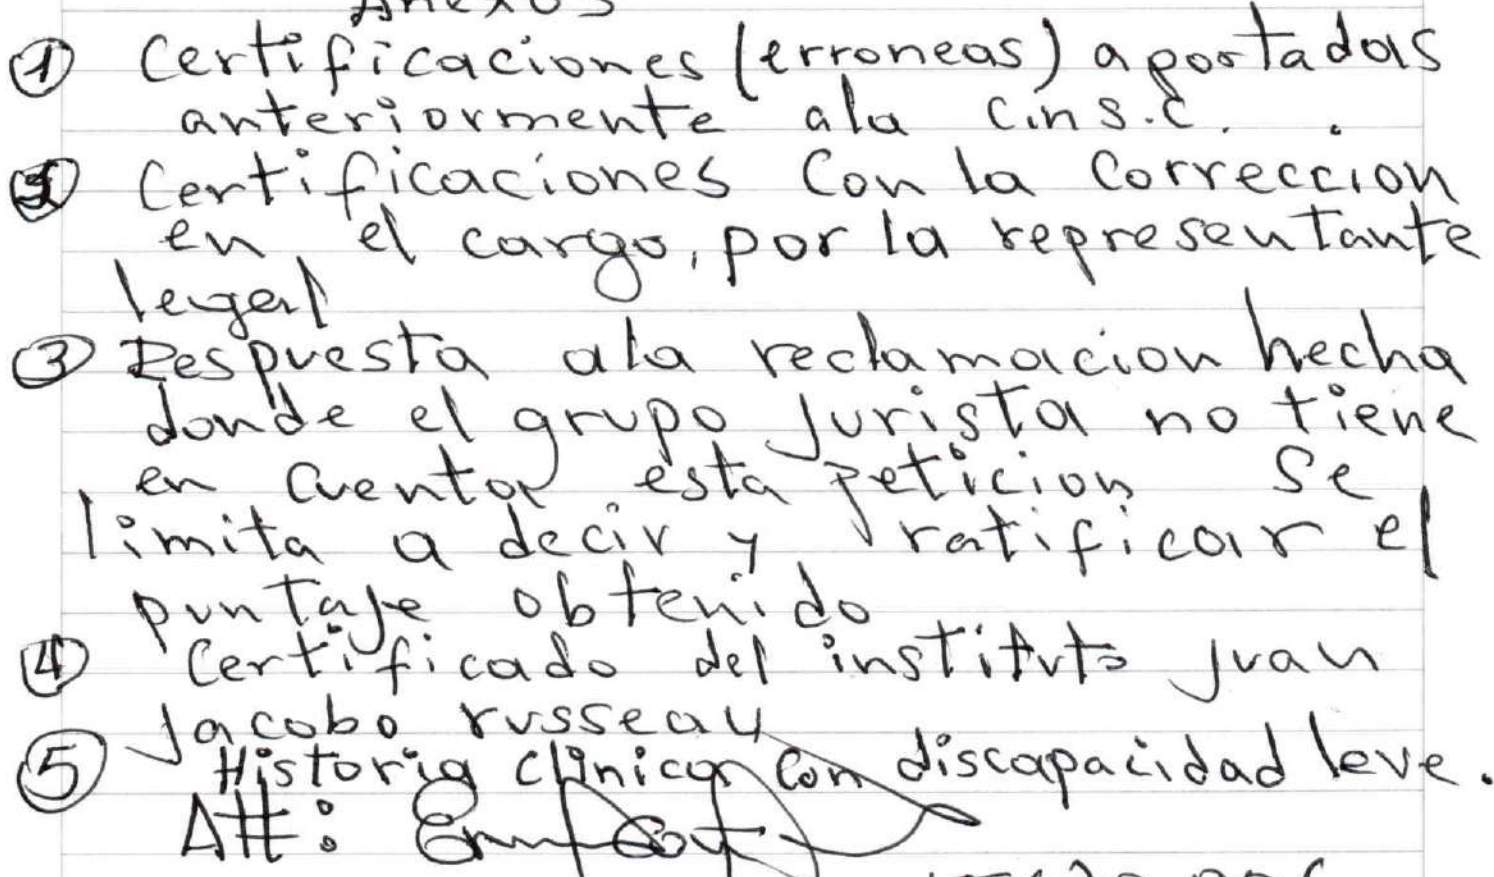 Anexos
① Certificaciones (erroneas) aportadas
anteriormente ala C.n.s.c.
② Certificaciones Con la Correccion
en el cargo, por la representante
legal
③ Respuesta ala reclamacion hecha
donde el grupo Jurista no tiene
en cuenta esta peticion Se
limita a decir y ratificar el
puntaje obtenido
④ Certificado del instituto Juan
Jacobo russeau
⑤ Historia clinica Con discapacidad leve.
Att: